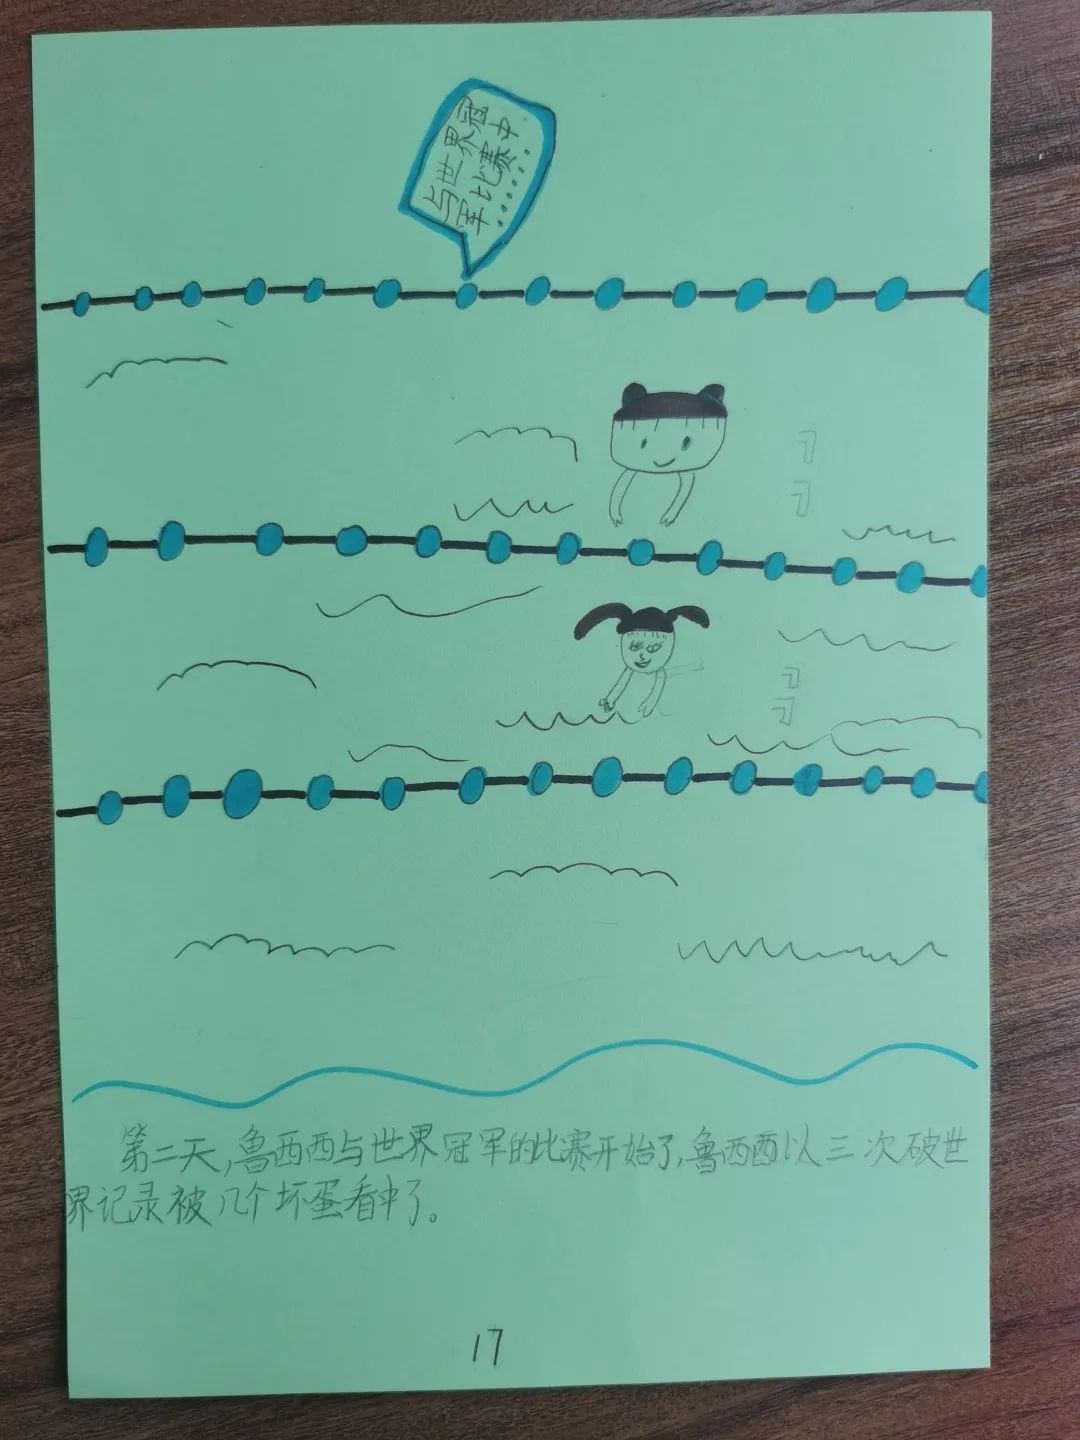 与世界冠
军比赛中
......
第二天,鲁西西与世界冠军的比赛开始了,鲁西西以三次破世
界记录被几个坏蛋看中了。
17